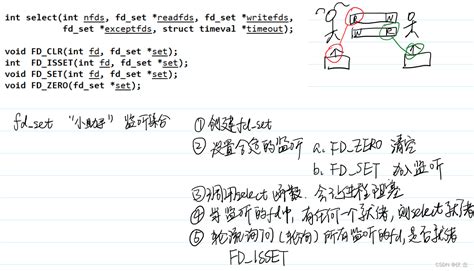 int select(int nfds, fd_set *readfds, fd_set *writefds,
fd_set *exceptfds, struct timeval *timeout);
void FD_CLR(int fd, fd_set *set);
int FD_ISSET(int fd, fd_set *set);
void FD_SET(int fd, fd_set *set);
void FD_ZERO(fd_set *set);
fd_set "小助手" 监听集合
①创建fd_set
②设置合适的监听 a. FD_ZERO 清空
b. FD_SET 加入监听
③调用select函数. 会让进程阻塞
④若监听的fd中, 有任何一个就绪, 则select就绪
⑤轮流询问(轮询)所有监听的fd, 是否就绪
FD_ISSET